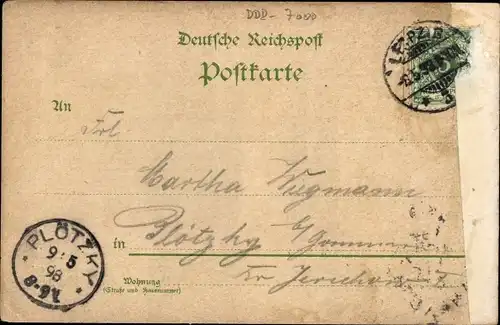 DDR- 7000
Deutsche Reichspost
Postkarte
An
Frl.
Martha Wugmann
in Plötzky b/ Gommern
Kr Jerichow I
Wohnung
(Straße und Hausnummer)
PLÖTZKY
9/5
98
8-9V
LEIPZIG